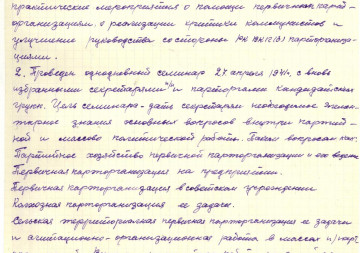 практические мероприятия о помощи первичным парт-
организациям, о реализации критики коммунистов и
улучшение руководства со стороны РК ВКП(б) парторганиза-
циями.
2. Проведен однодневный семинар 27 апреля 1941г. с вновь
избранными секретарями п/п и парторгами кандидатских
групп. Цель семинара - дать секретарям необходимое
знания основных вопросов внутри партий-
ной и массово политической работы. Таким вопросам как:
Партийное хозяйство первичной парторганизации и его ведение
Первичная парторганизация на предприятии.
Первичная парторганизация в советском учреждении
Колхозная парторганизация ее задачи.
Сельская территориальная первичная парторганизация ее задачи
и агитационно-организационная работа в массах и